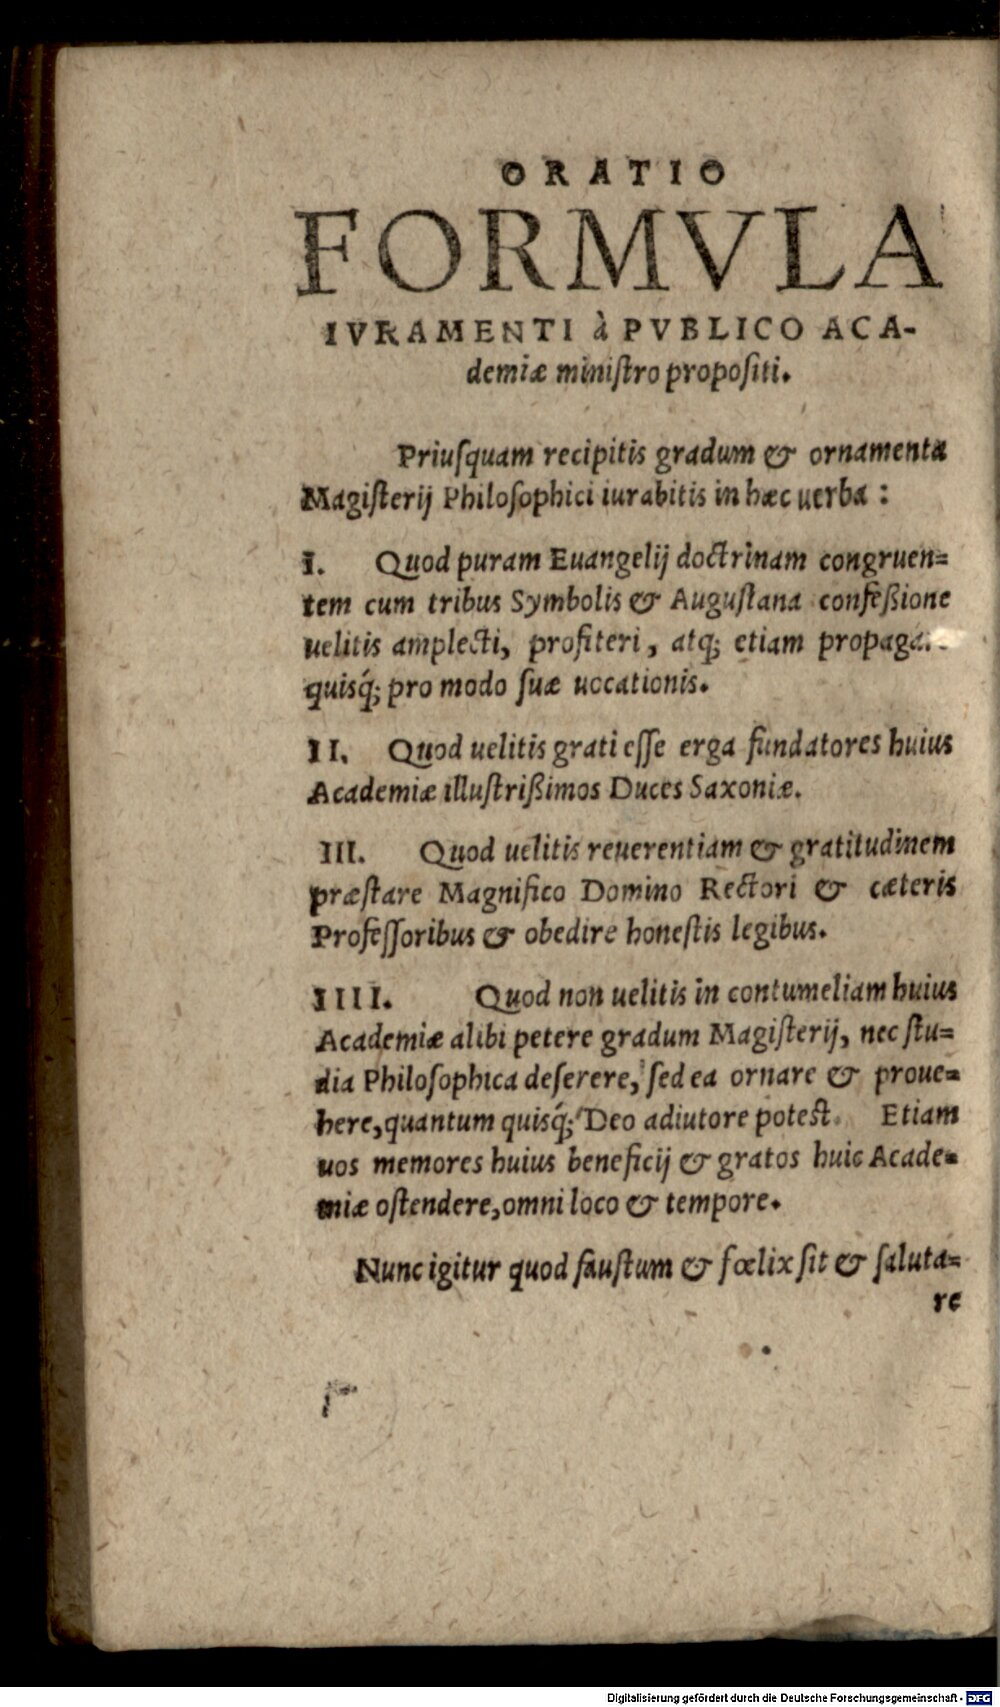 ORATIO
FORMVLA
IVRAMENTI à PVBLICO ACA-
demiæ miniſtro propoſiti.
Priuſquam recipitis gradum & ornamenta
Magiſterij Philoſophici iurabitis in hæc uerba :
I. Quod puram Euangelij doctrinam congruen=
tem cum tribus Symbolis & Auguſtana confeßione
uelitis amplecti, profiteri, atq; etiam
quisq́; pro modo ſuæ uocationis.
II. Quod uelitis grati eſſe erga fundatores huius
Academiæ illuſtrißimos Duces Saxoniæ.
III. Quod uelitis reuerentiam & gratitudinem
præſtare Magnifico Domino Rectori & cæteris
Profeſſoribus & obedire honeſtis legibus.
IIII. Quod non uelitis in contumeliam huius
Academiæ alibi petere gradum Magiſterij, nec ſtu=
dia Philoſophica deſerere, ſed ea ornare & proue=
here, quantum quisq́; Deo adiutore poteſt. Etiam
uos memores huius beneficij & gratos huic Acade=
miæ oſtendere, omni loco & tempore.
Nunc igitur quod fauſtum & fœlix ſit & ſaluta=
re
Digitalisierung gefördert durch die Deutsche Forschungsgemeinschaft - DFG